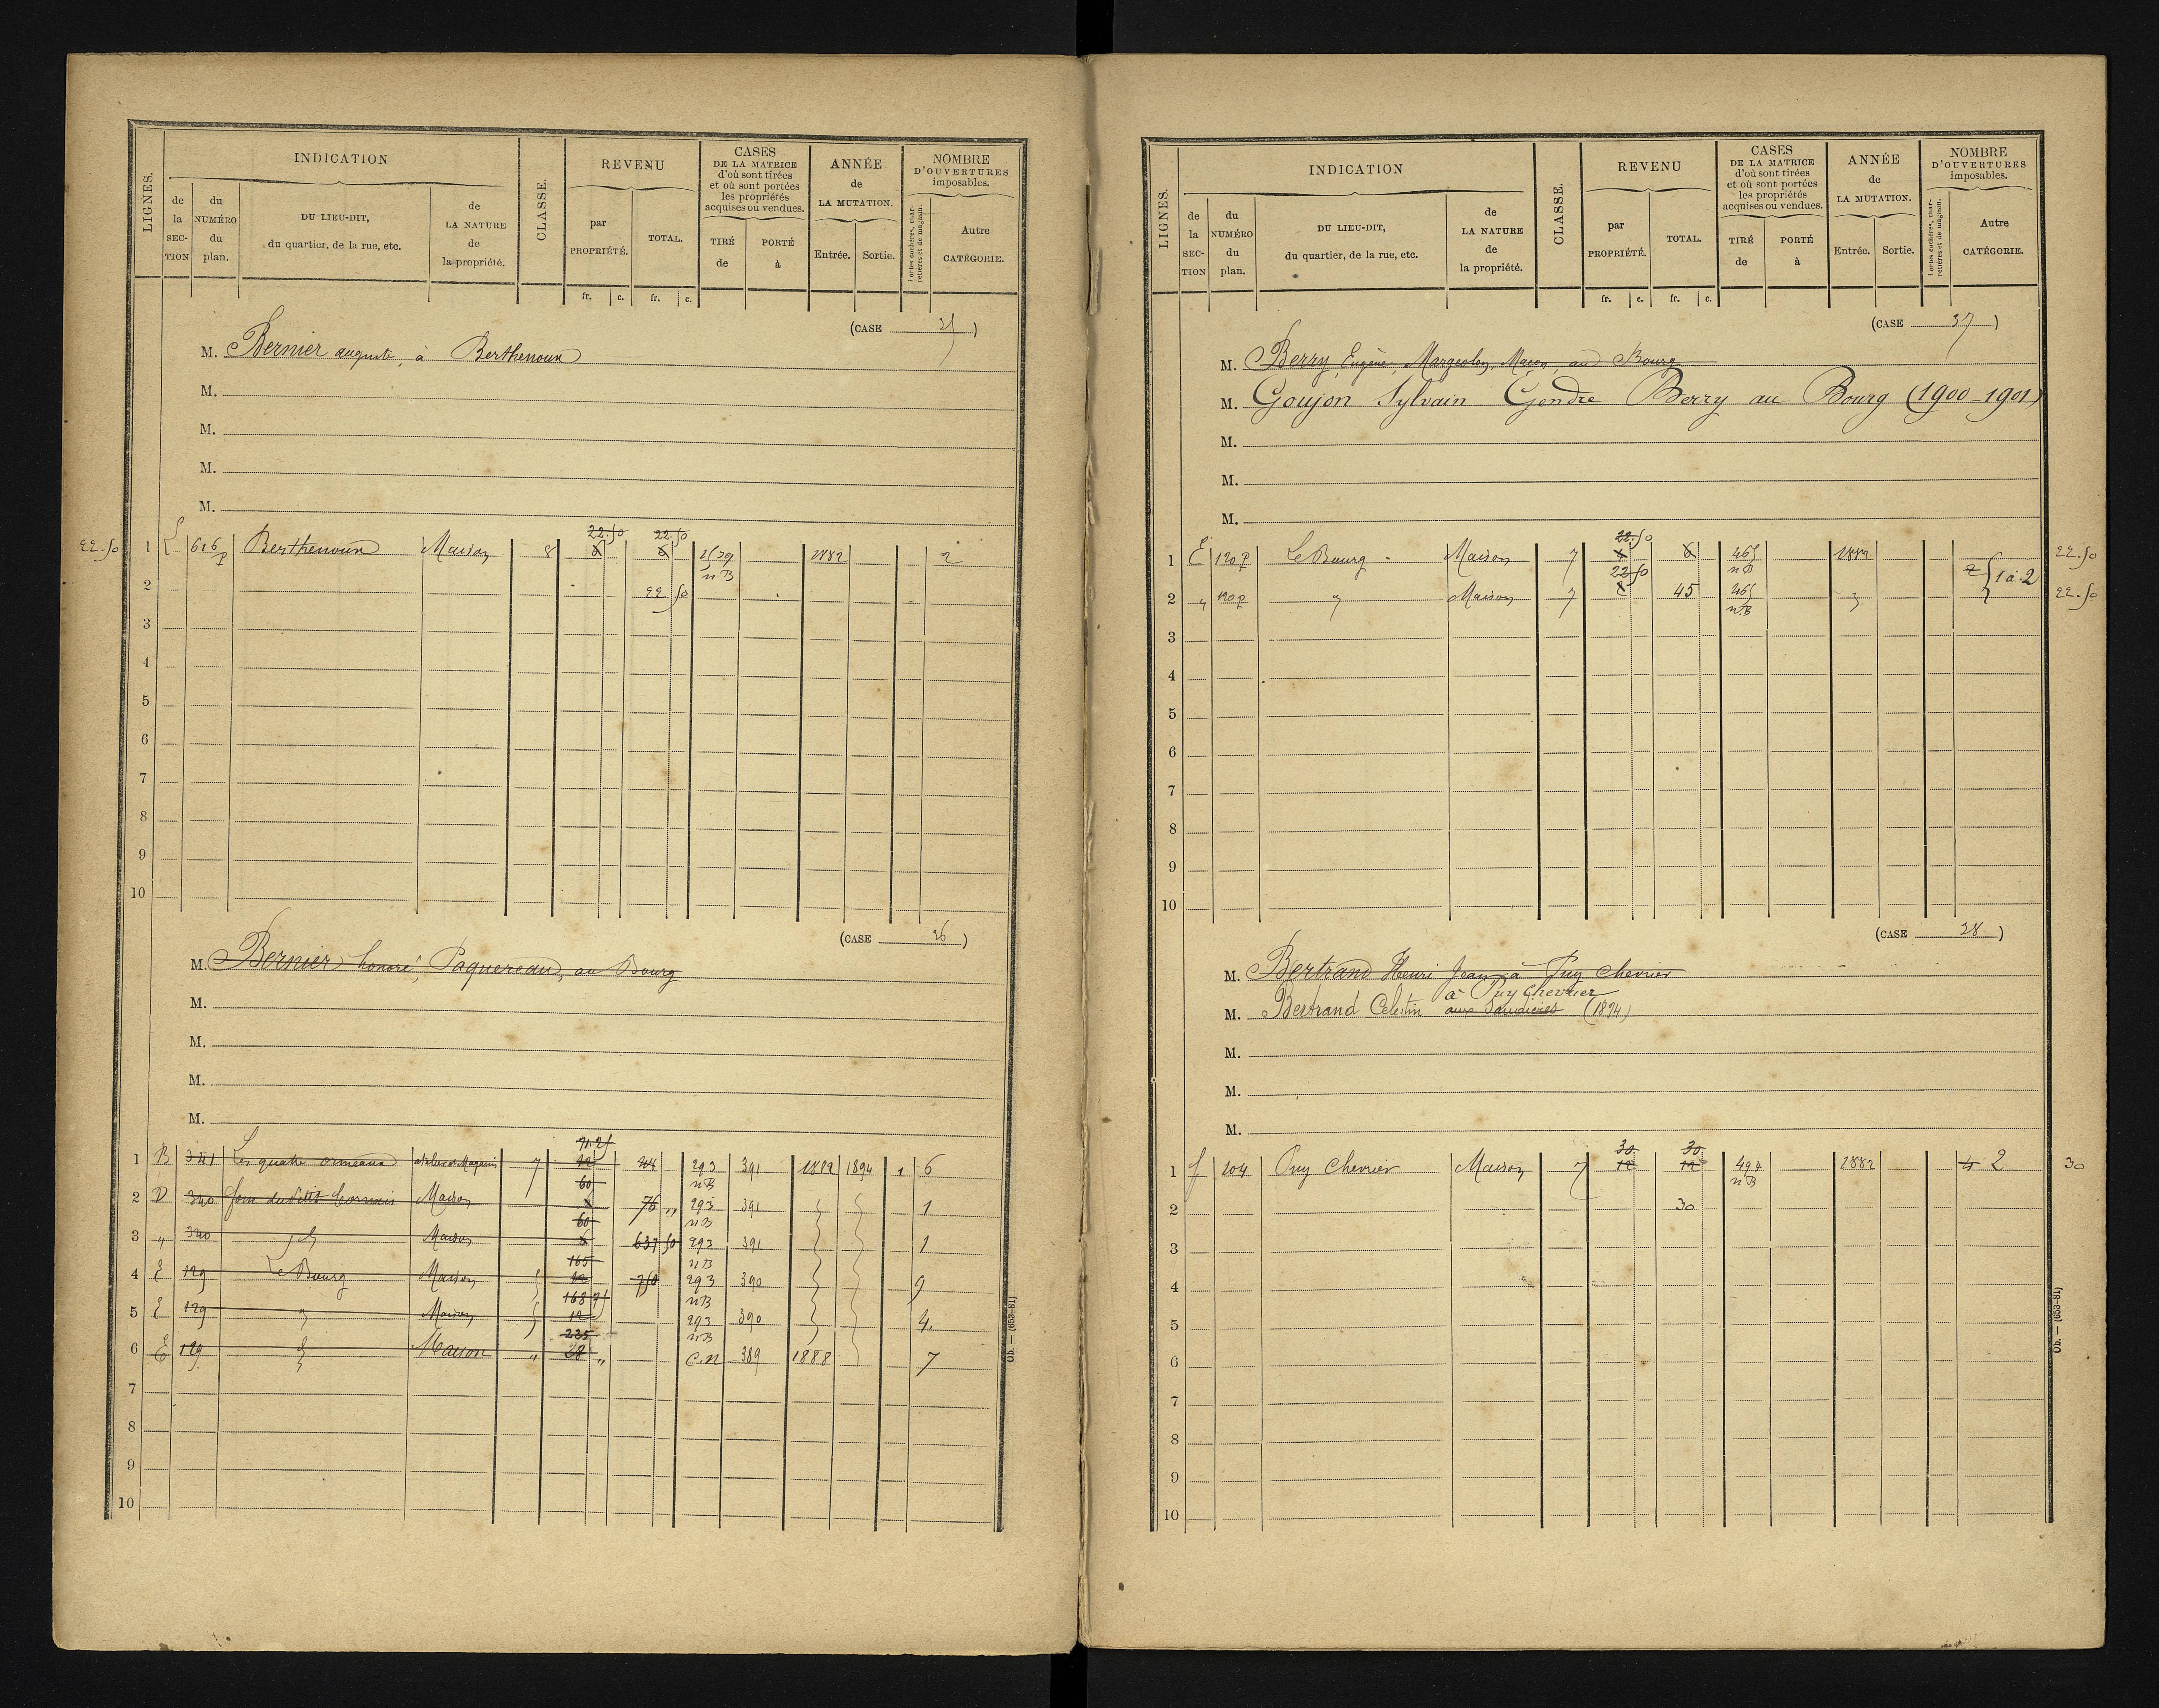 LIGNES.
INDICATION
de la SECTION
du NUMÉRO du plan.
DU LIEU-DIT, du quartier, de la rue, etc.
de LA NATURE de la propriété.
CLASSE.
REVENU
par PROPRIÉTÉ.
TOTAL.
fr. c. fr. c.
CASES DE LA MATRICE d'où sont tirées et où sont portées les propriétés acquises ou vendues.
TIRÉ de
PORTÉ à
ANNÉE de LA MUTATION.
Entrée. Sortie.
NOMBRE D'OUVERTURES imposables.
Portes cochères, charretières et de magasin.
Autre CATÉGORIE.
(CASE 35)
M. Bernier auguste, à Berthenoux
M.
M.
M.
M.
22.50
22.50 22.50
1 616 p Berthenoux Maison 8 8 8 1882 2
n B
2 22 50
3
4
5
6
7
8
9
10
(CASE 36)
M. Bernier honoré, Paquereau, au Bourg
M.
M.
M.
M.
91.25
1 B 341 Les quatre ormeaux atelier et Magasin 7 12 293 391 1882 1894 1 6
60 n B
2 D 340 Maison 8 76 „ 293 391 1
60 n B
3 „ 340 Maison 8 637 50 293 391 1
165 n B
4 E 129 Le Bourg Maison 12 750 293 390 9
168 75 n B
5 E 129 Maison 12 293 390 4.
235 n B
6 E 129 Maison „ 28 „ C.n 389 1888 7
7
8
9
10
Ob. — (653-81)
LIGNES.
INDICATION
de la SECTION
du NUMÉRO du plan.
DU LIEU-DIT, du quartier, de la rue, etc.
de LA NATURE de la propriété.
CLASSE.
REVENU
par PROPRIÉTÉ.
TOTAL.
fr. c. fr. c.
CASES DE LA MATRICE d'où sont tirées et où sont portées les propriétés acquises ou vendues.
TIRÉ de
PORTÉ à
ANNÉE de LA MUTATION.
Entrée. Sortie.
NOMBRE D'OUVERTURES imposables.
Portes cochères, charretières et de magasin.
Autre CATÉGORIE.
(CASE 37)
M. Berry Eugène, Margeolon, Maçon, au Bourg
M. Goujon Sylvain Gendre Berry au Bourg (1900-1901)
M.
M.
M.
22.50
1 E 120 p Le Bourg Maison 7 8 8 465 1882 22.50
22 50 n B 2 1 à 2
2 „ 120 p Maison 7 8 45 465 22.50
n B
3
4
5
6
7
8
9
10
(CASE 38)
M. Bertrand Henri Jean à Puy Chevrier
à Puy Chevrier
M. Bertrand Celestin (1894)
M.
M.
M.
30 30
1 f 204 Puy Chevrier Maison 7 12 12 494 1882 4 2 30
n B
2 30
3
4
5
6
7
8
9
10
Ob. — (653-81)